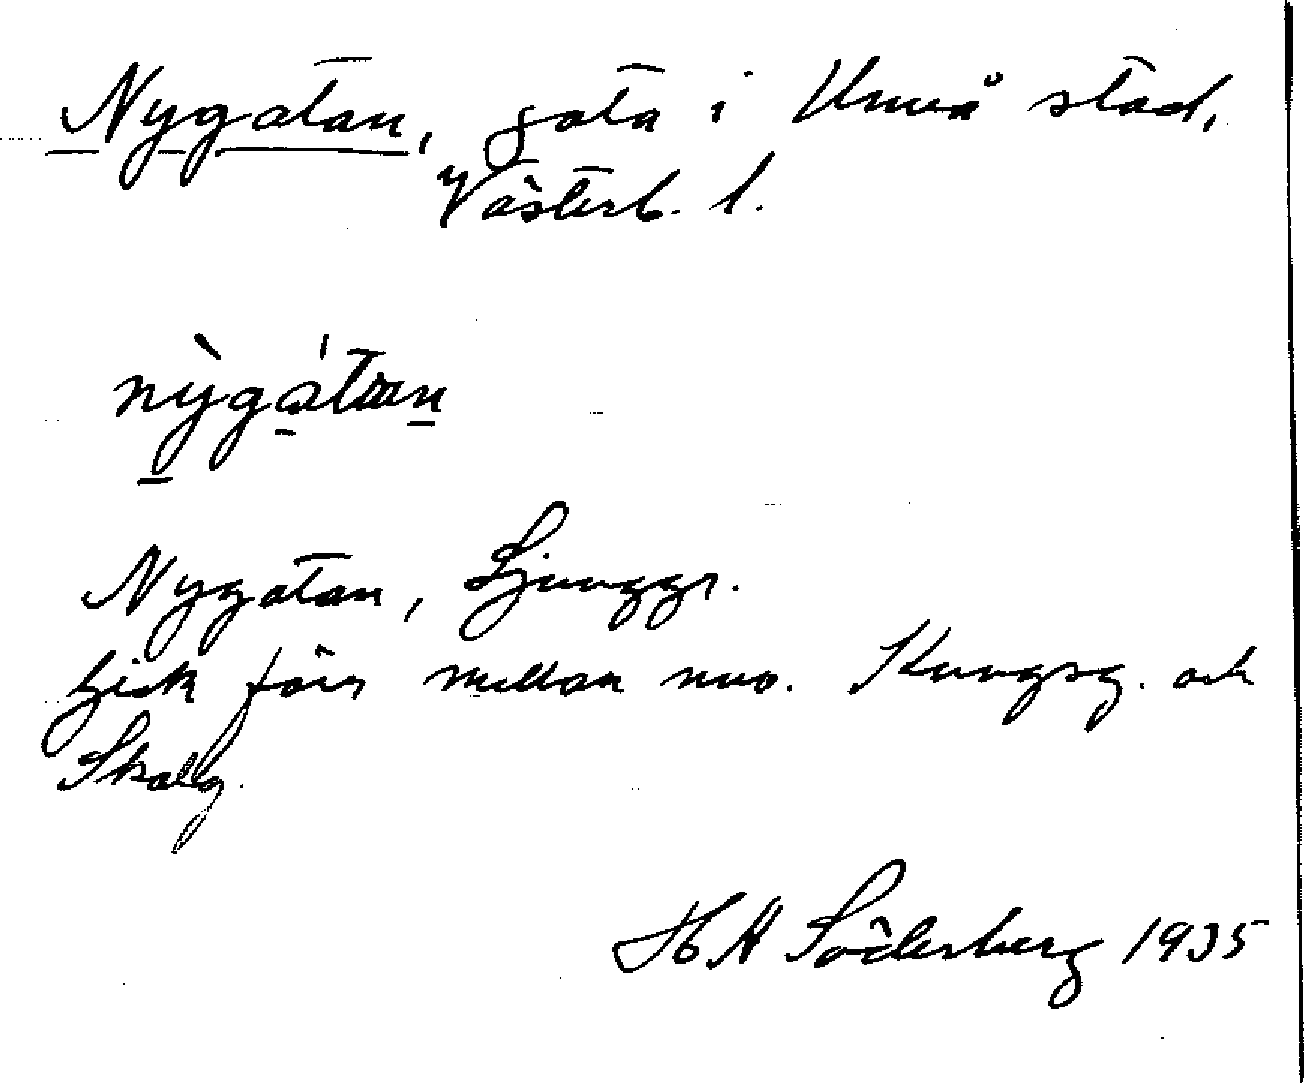 Nygatan, gata i Umeå stad,
Västerb. l.
nỳgátan
Nygatan, Ljunggr.
Gick förr mellan nuv. Kungsg. och
Skolg.
H A Söderberg 1935